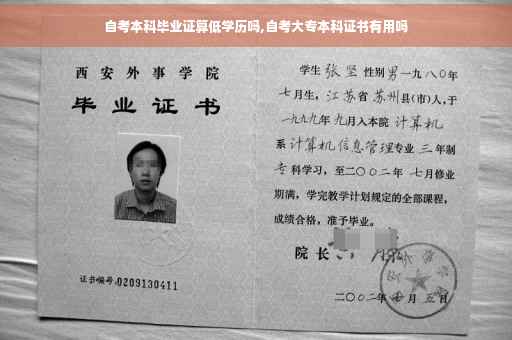 自考本科毕业证算低学历吗,自考大专本科证书有用吗
西安外事学院
毕业证书
证书编号:0209130411
学生 张坚 性别 男 一九八〇年
七月生, 江苏省 苏州县(市)人,于
一九九九年 九月入本院 计算机
系 计算机信息管理专业 三 年制
专 科学习, 至二〇〇二年 七月修业
期满, 学完教学计划规定的全部课程,
成绩合格, 准予毕业。
院长
二〇〇二年 月 五日